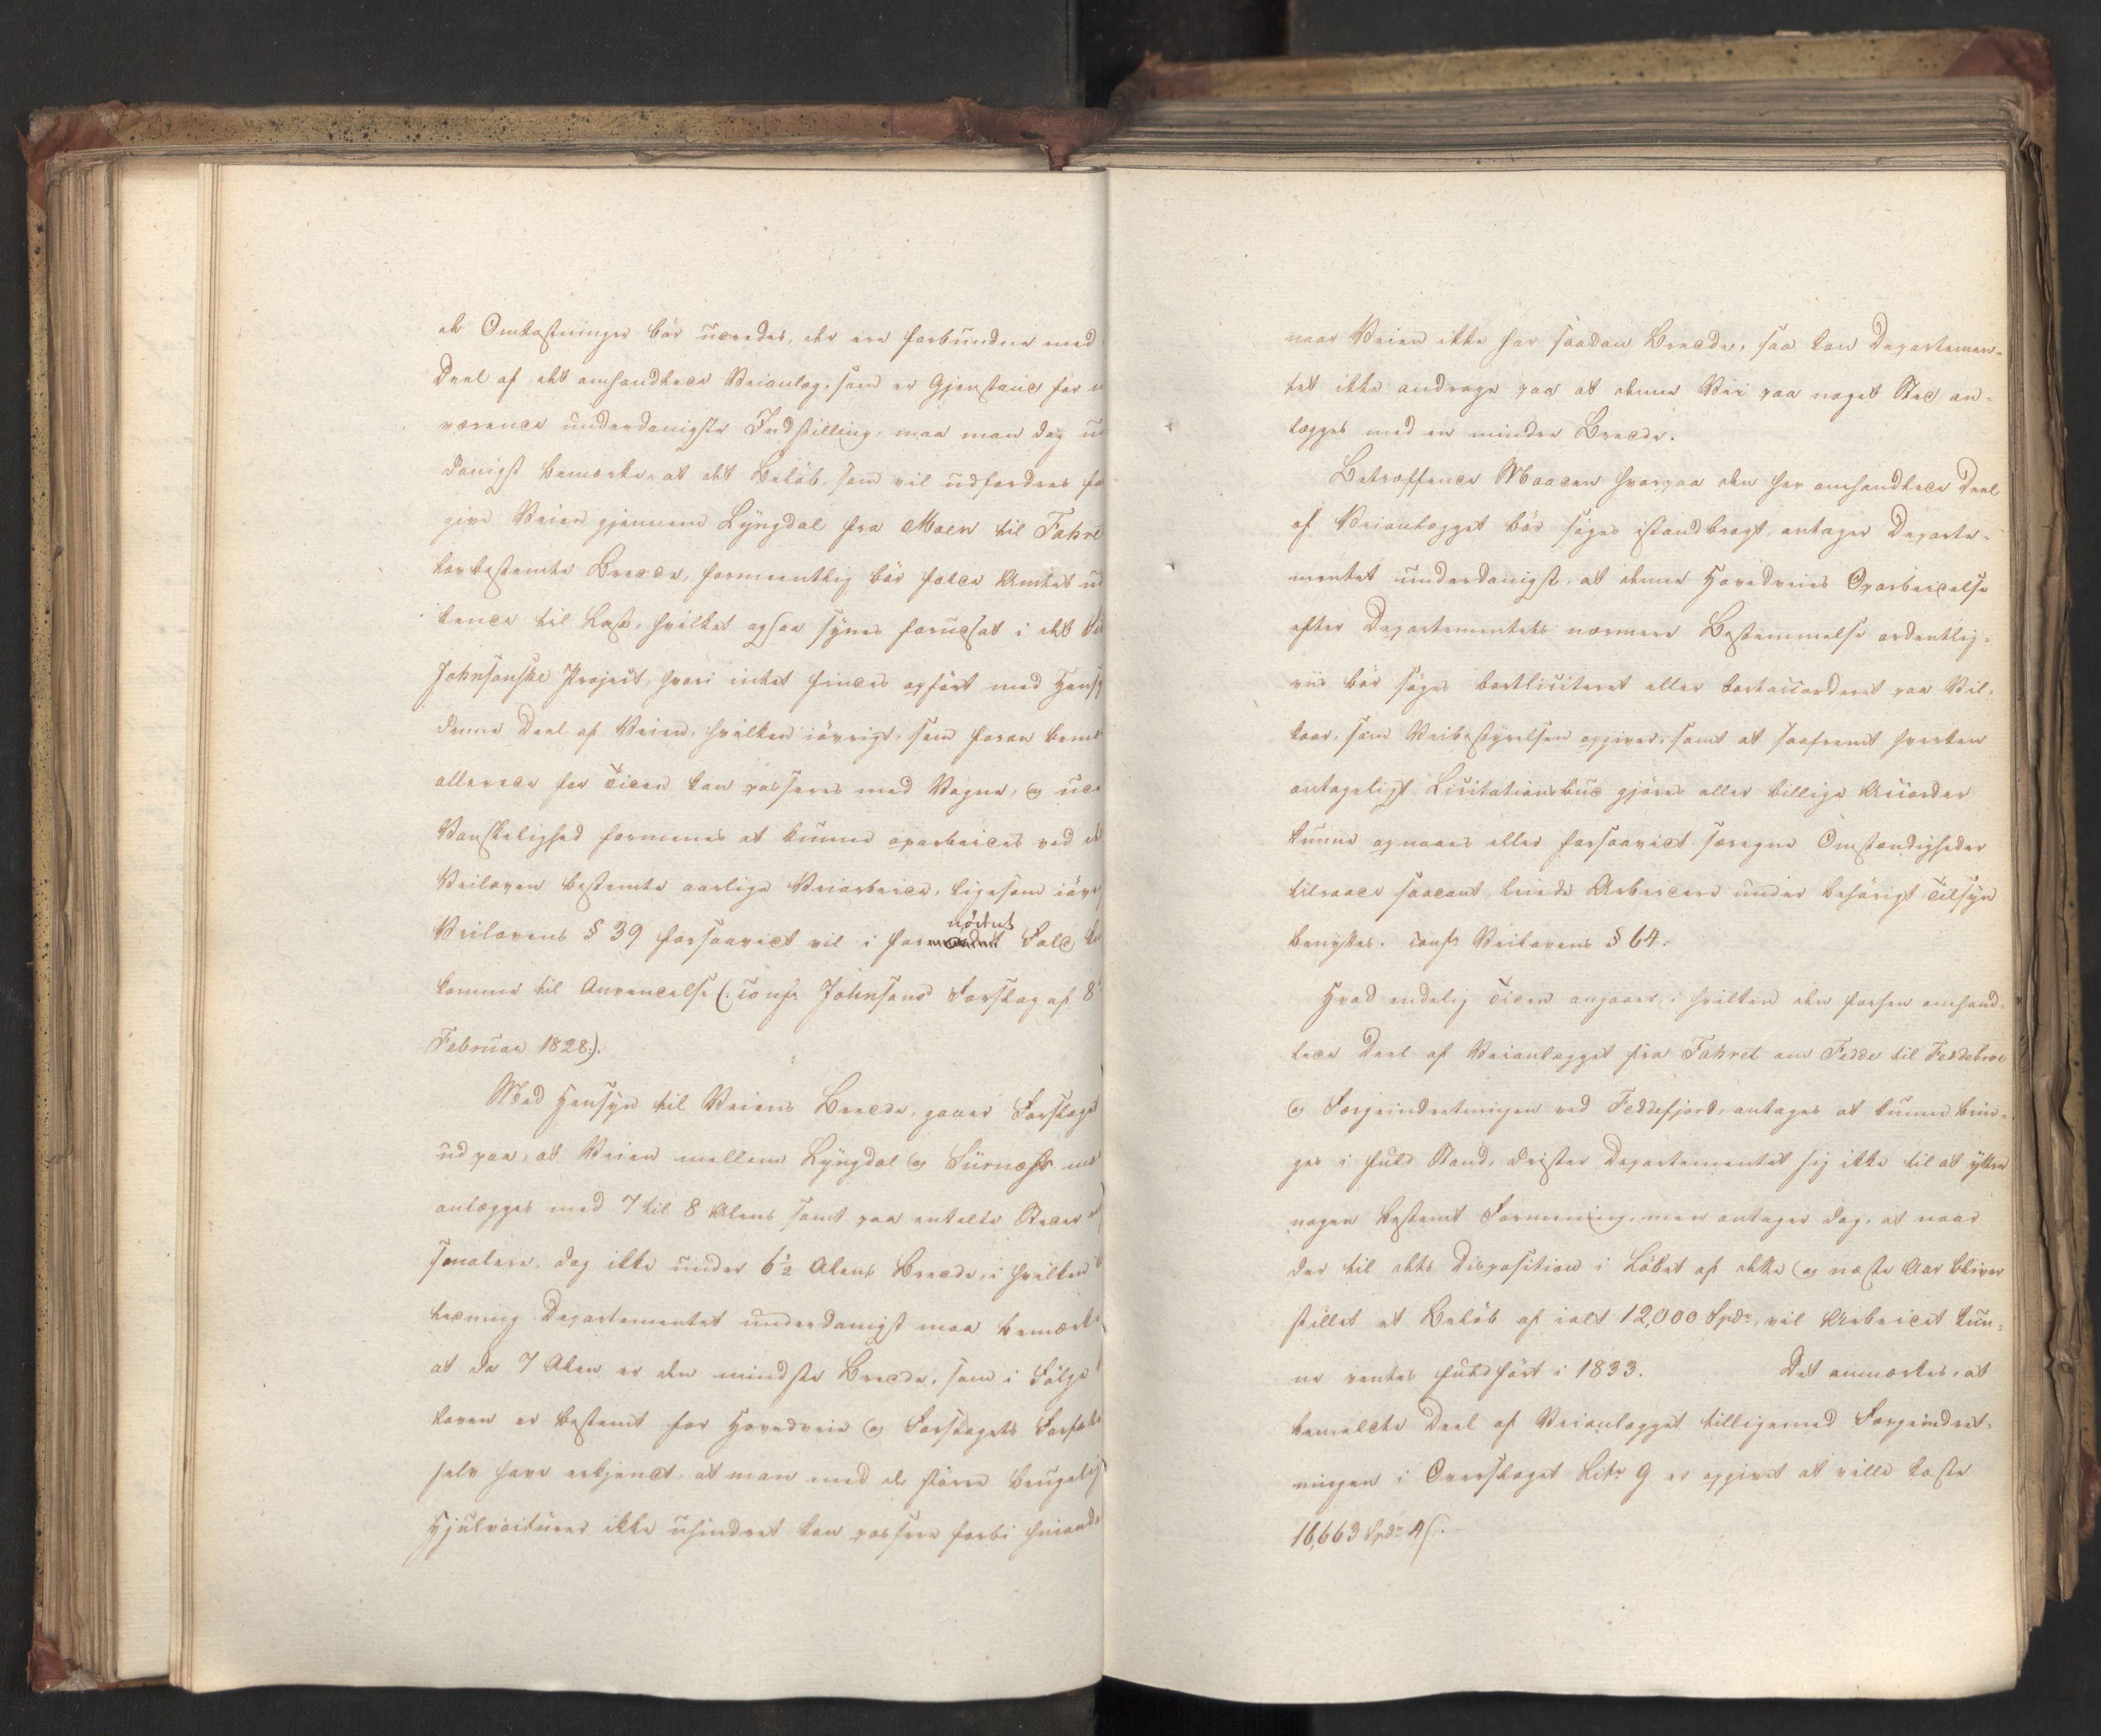 de Omkostninger bör udredes, der ere forbundne med
Deel af det omhandlede Veianlæg, som er Gjenstand for n
værende underdanigste Indstilling, maa man dog un
danigst bemærke, at det Belöb, som vil udfordres fo
give Veien gjennem Lyngdal fra Moen til Fahre
lovbestemte Brede, formeentlig bör falde Amtet ud
lende til Last, hvilket ogsaa synes forudsat i det
Johnsonske Project, hvori intet findes opfört med Hensy
denne Deel af Veien, hvilken iövrigt, som foran bemæ
allerede for Tiden kan passeres med Vogne, og uden
Vanskelighed formenes at kunne oparbeides ved de
Veiloven bestemte aarlige Veiarbeide, ligesom iövr
Veilovens § 39 forsaavidt vil i fornödent Fald
komme til Anvendelse (: confr Johnsons Forslag af 8
Februar 1828:).
Med Hensyn til Veiens Brede, gaaer Forslaget
ud paa, at Veien mellem Lyngdal og Siirnæss
anlægges med 7 til 8 Alens samt paa enkelte Steder
smalere, dog ikke under 6½ Alens Brede, i hvilken
ledning Departementet underdanigst maa bemærke
at da 7 Alen er den mindste Brede, som i Fölge
loven er bestemt for Hovedveie og Forslagets Forfatt
selv have erkjendt, at man med de större brugelig
Hjulvoiturer ikke uhindret kan passere forbi hinande
naar Veien ikke har saadan Brede, saa kan Departemen-
tet ikke andrage paa at denne Vei paa noget Sted an-
lægges med en mindre Brede.
Betræffende Maaden hvorpaa den her omhandlede Deel
af Veianlægget bör söges istandbragt, antager Departe-
mentet underdanigst, at denne Hovedveies Oparbeidelse
efter Departementets nærmere Bestemmelse ordentlig-
viis bör söges bortliciteret eller bortaccorderet paa Vil-
kaar, som Veibestyrelsen opgiver, samt at saafremt hverken
antageligt Licitationsbud gjöres eller billige Accorder
kunne opnaaes eller forsaavidt særegne Omstændigheder
tilraade saadant, leiede Arbeidere under behörigt Tilsyn
benyttes. confr Veilovens § 64.
Hvad endelig Tiden angaaer, i hvilken den forhen omhand-
lede Deel af Veianlægget fra Fahret om Fedde til Feddebroe
og Færgeindretningen ved Feddefjord, antages at kunne brin-
ges i fuld Stand, drister Departementet sig ikke til at yttre
nogen bestemt Formening, men antager dog, at naar
der til dets Disposition i Löbet af dette og næste Aar bliver
stillet et Belöb af ialt 12,000 Spdr, vil Arbeidet kun-
ne ventes fuldfört i 1833. Det anmærkes, at
bemeldte Deel af Veianlægget tilligemed Færgeindret-
ningen i Overslaget Litr G er opgivet at ville koste
16,663 Spdr 4 s.